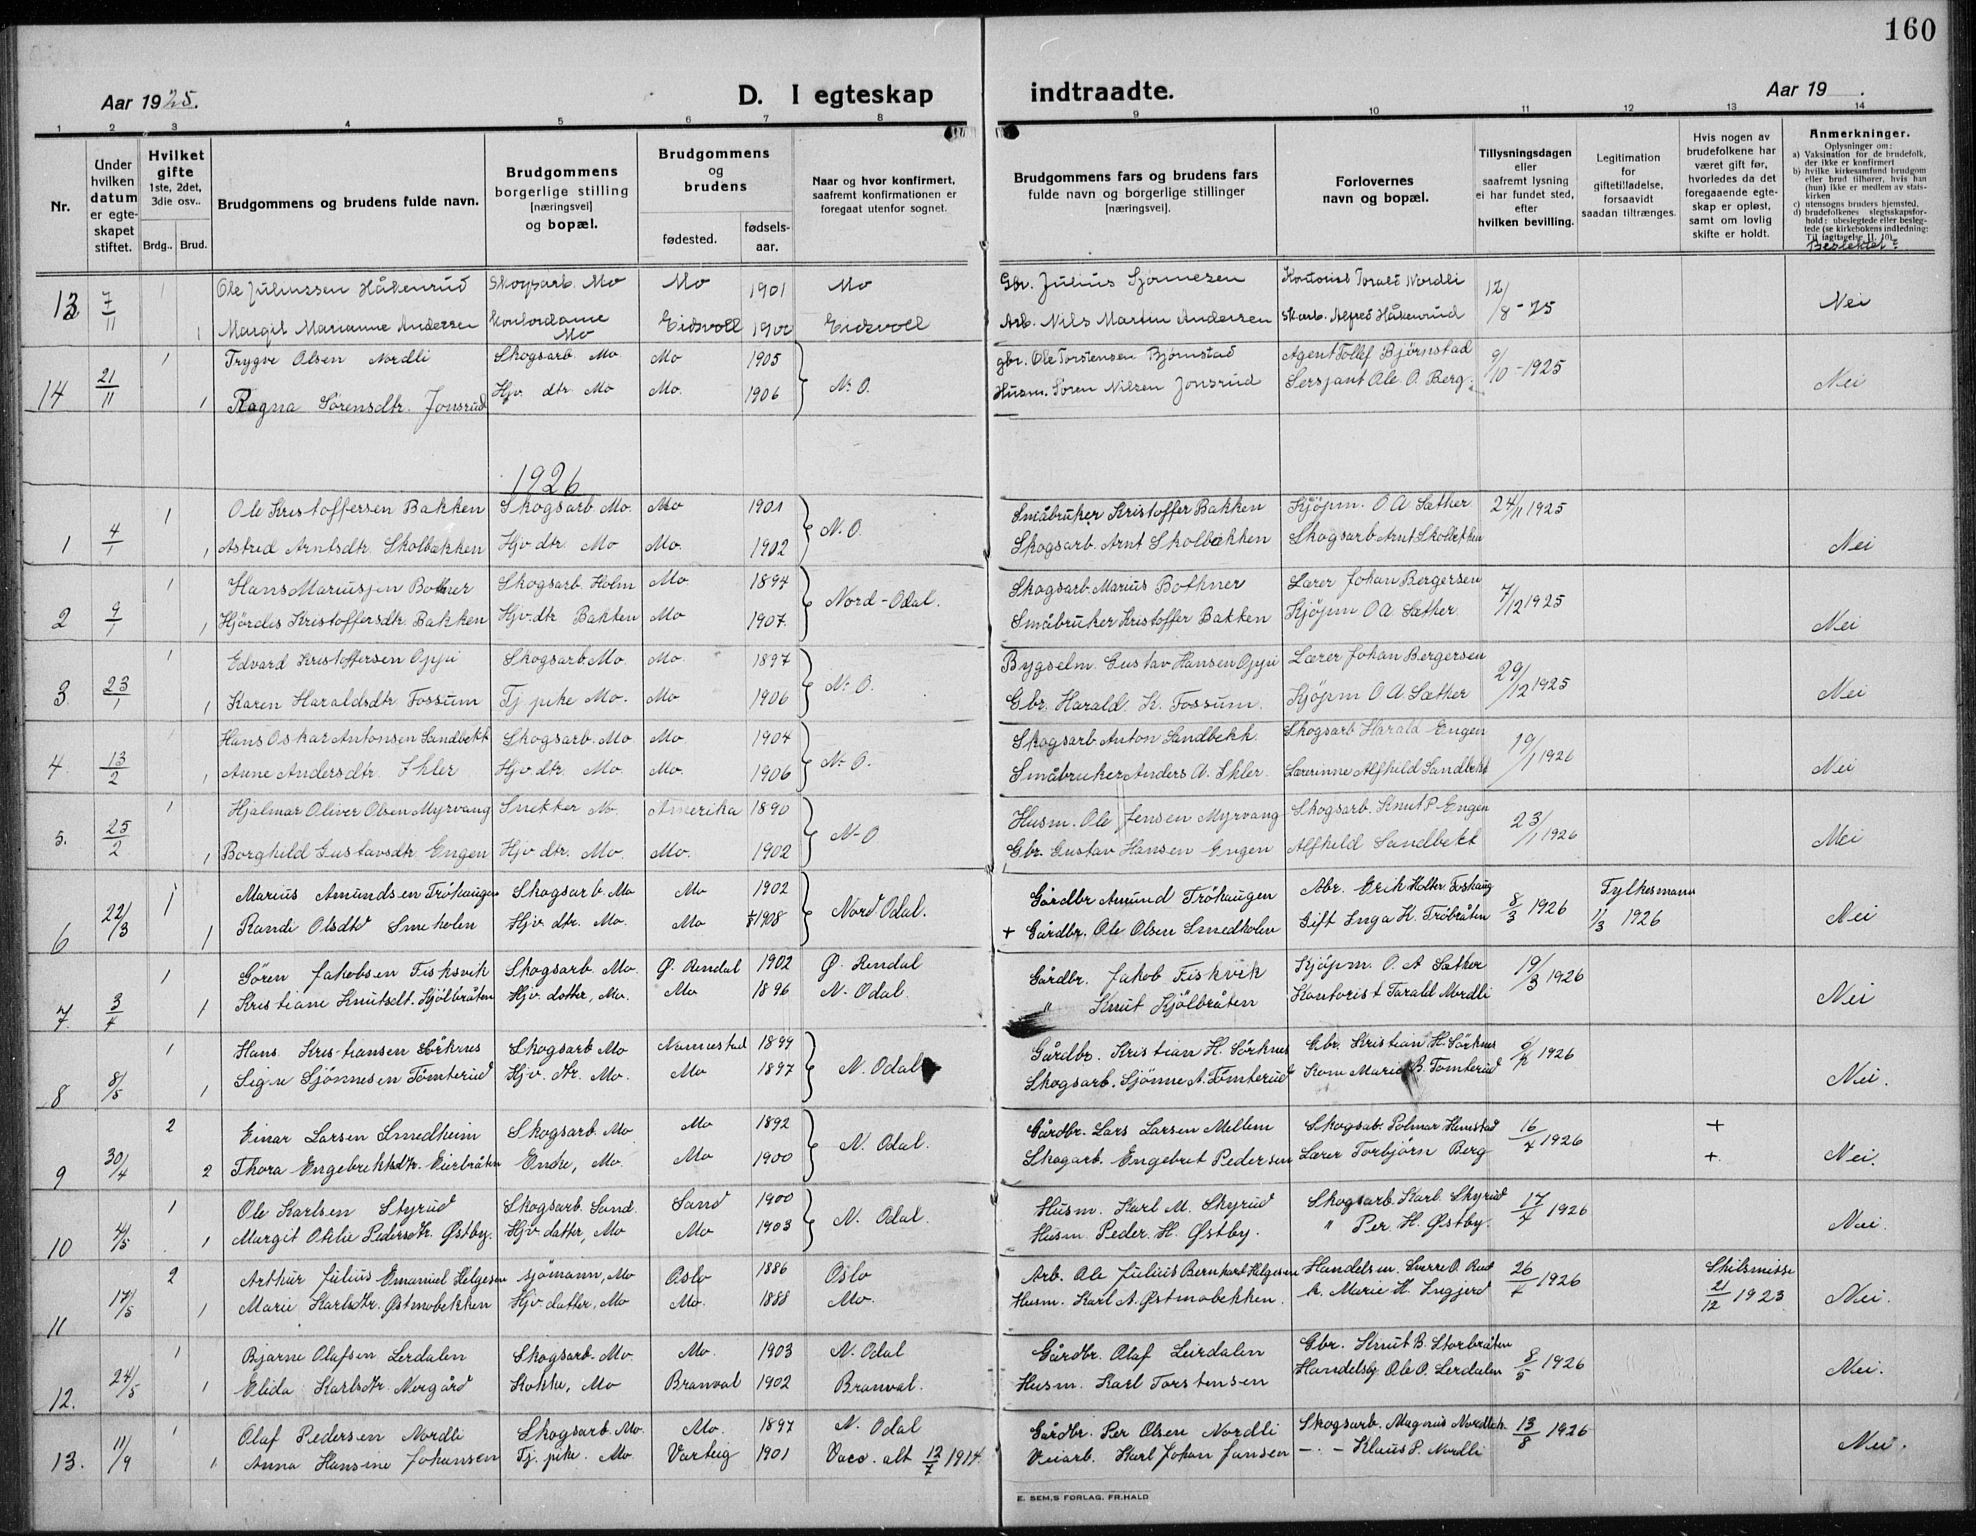 160
Aar 1925.
D. I egteskap indtraadte.
Aar 19 .
1 2 3 4 5 6 7 8 9 10 11 12 13 14
Nr.
Under hvilken datum er egte-skapet stiftet.
Hvilket gifte 1ste, 2det, 3die osv..
Brdg.. Brud.
Brudgommens og brudens fulde navn.
Brudgommens borgerlige stilling [næringsvei] og bopæl.
Brudgommens og brudens
fødested.
fødsels-aar.
Naar og hvor konfirmert, saafremt konfirmationen er foregaat utenfor sognet.
Brudgommens fars og brudens fars fulde navn og borgerlige stillinger [næringsvei].
Forlovernes navn og bopæl.
Tillysningsdagen eller saafremt lysning ei har fundet sted, efter hvilken bevilling.
Legitimation for giftetilladelse, forsaavidt saadan tiltrænges.
Hvis nogen av brudefolkene har været gift før, hvorledes da det foregaaende egte-skap er opløst, samt om lovlig skifte er holdt.
Anmerkninger.
Oplysninger om:
a) Vaksination for de brudefolk, der ikke er konfirmert
b) hvilke kirkesamfund brudgom eller brud tilhører, hvis han (hun) ikke er medlem av stats-kirken
c) utensogns bruders hjemsted.
d) brudefolkenes slegtsskapsfor-hold: ubeslegtede eller besleg-tede (se kirkebokens indledning: Til iagttagelse II, 10).
Beslektet?
13 7/11 1 Ole Juliussen Håkenrud Skogsarb. Mo Mo 1901 Mo Gbr. Julius Sjønnesen Kontorist Torald Nordli 12/8-25 Nei
1 Margit Marianne Andersen Kontordame Mo Eidsvoll 1900 Eidsvoll Arb. Nils Martin Andersen Skarb. Alfred Håkenrud
14 21/11 1 Trygve Olsen Nordli Skogsarb. Mo Mo 1905 N. O. gbr. Ole Torstensen Bjørnstad Agent Tollef Bjørnstad 9/10-1925 Nei
1 Ragna Sørensdtr. Jonsrud Hjv. dtr Mo Mo. 1906 Husm. Søren Nilsen Jonsrud Sersjant Ole O. Berg.
1926
1 4/1 1 Ole Kristoffersen Bakken Skogsarb Mo. Mo 1901 N. O. Småbruker Kristoffer Bakken Kjöpm. O A Sæther 24/11 1925 Nei
1 Astrid Arntsdtr. Skolbekken Hjv dtr. Mo Mo. 1902 Skogsarb. Arnt Skolbekken Skogsarb Arnt Skolbekken
2 9/1 1 Hans Mariussen Bothner Skogsarb. Holm Mo 1894 Nord-Odal. Skogsarb. Marius Bothner Lærer Johan Bergersen 7/12 1925 Nei
1 Hjördis Kristoffersdtr. Bakken Hjv.dtr Bakken Mo 1907. Småbruker Kristoffer Bakken Kjöpm O A Sæther
3 23/1 1 Edvard Kristoffersen Opju Skogsarb. Mo. Mo. 1897 N. O. Bygselm. Gustav Hansen Opju Lærer Johan Bergersen 29/12 1925 Nei
1 Karen Haraldsdtr Fossum Tj pike Mo. Mo 1906 Gbr. Harald K. Fossum. Kjöpm O A Sæther
4 13/2 Hans Oskar Antonsen Sandbekk Skogsarb. Mo. Mo 1904 N. O. Skogsarb Anton Sandbekk. Skogsarb Harald Engen 19/1 1926 Nei
1 Anne Andersdtr. Ihler Hjv dtr. Mo. Mo. 1906 Småbruker Anders A. Ihler. Lærerinne Alfhild Sandbekk
5. 25/2 1 Hjalmar Oliver Olsen Myrvang Snekker Mo. Amerika 1890 N. O Husm. Ole Jensen Myrvang Skogsarb. Knut P Engen 23/1 1926 Nei
1 Borghild Gustavsdtr. Engen Hjv dtr. Mo. Mo. 1902 Gbr. Gustav Hansen Engen Alfhild Sandbekk
6 22/3 1 Marius Amundsen Tröhaugen Skogsarb. Mo Mo 1902 Nord Odal. Gårdbr Amund Tröhaugen Erik Holter 8/3 1926 Fylkesmann 11/3 1926 Nei
1 Randi Olsdtr Smeholen Hjv dtr. Mo. Mo 1908 + Gårdbr. Ole Olsen Smedholen Gift Inga K. Tröbråten
7. 3/4 1 Gören Jakobsen Fiskvik Skogsarb. Mo. Ø. Rendal 1902 Ø. Rendal Gårdbr. Jakob Fiskvik Kjöpm. O. A Sæther 19/3 1926 Nei
1 Kristiane Knutsdt. Kjölbråten Hjv. dotter, Mo. Mo 1896 N. Odal. " Knut Kjölbråten Kontorist Tarald Nordli
8 8/5 1 Hans Kristiansen Sörknes Skogsarb Mo Nannestad 1899 N. Odal Gårdbr. Kristian H. Sörknes Gbr. Kristian H. Sörknes 1926 Nei.
1 Signe Sjönnesen Tömterud Hjv. dtr. Mo. Mo 1897 Skogsarb. Sjönne A. Tömterud Kone Marie B. Tomterud
9 30/4 2 Einar Larsen Smedheim Skogsarb. Mo Mo 1892 N. Odal. Gårdbr. Lars Larsen Mellem Skogsab. Polmar Hemstad 16/4 1926 + Nei.
2 Thora Engebrektsdtr. Eierbråten Enke, Mo. Mo 1900 Skogarb. Engebret Pedersen Lærer Torbjörn Berg +
10 4/5 1 Ole Karlsen Styrud Skogsarb. Sand. Sand 1900 N. Odal. Husm. Karl M. Skyrud Skogsarb. Karl Skyrud 17/4 1926 Nei.
1 Margit Otilie Pedersdtr. Østby. Hjv datter, Mo Mo 1903 Husm. Peder. H. Østby. " Per H. Østby.
11 17/5 2 Arthur Julius Emanuel Helgesen sjömann, Mo Oslo 1886 Oslo Arb. Ole Julius Bernhard Helgesen Handelsm. Sverre O. Rud 26/4 1926 Skilsmisse 21/12 1923 Nei.
1 Marie Karlsdtr. Østmobekken Hjv datter, Mo Mo. 1888 Mo. Husm. Karl A. Østmobekken. h. Marie H. Ingjerd
12. 24/5 1 Bjarne Olafsen Lerdalen Skogsarb. Mo. Mo. 1903 N. Odal Gårdbr. Olaf Leirdalen Gbr. Knut B. Storbråten 8/5 1926 Nei.
1 Elida Karlsdtr. Nergård Kokke, Mo Branval 1902 Branval. Husm. Karl Torstensen Handelsb. Ole O. Lerdalen
13. 11/9 1 Olaf Pedersen Nordli Skogsarb. Mo. Mo. 1897 N. Odal Gårdbr. Per Olsen Nordli Skogsarb. Magnus Nordbek. 13/8 1926 Nei.
1 Anna Hansine Johansen Tj. pike. Mo Varteig 1901 Vacc. alt 12/7 1914. Veiarb. Karl Johan Jansen —.— Klaus P. Nordli
E. SEM,S FORLAG, FR.HALD